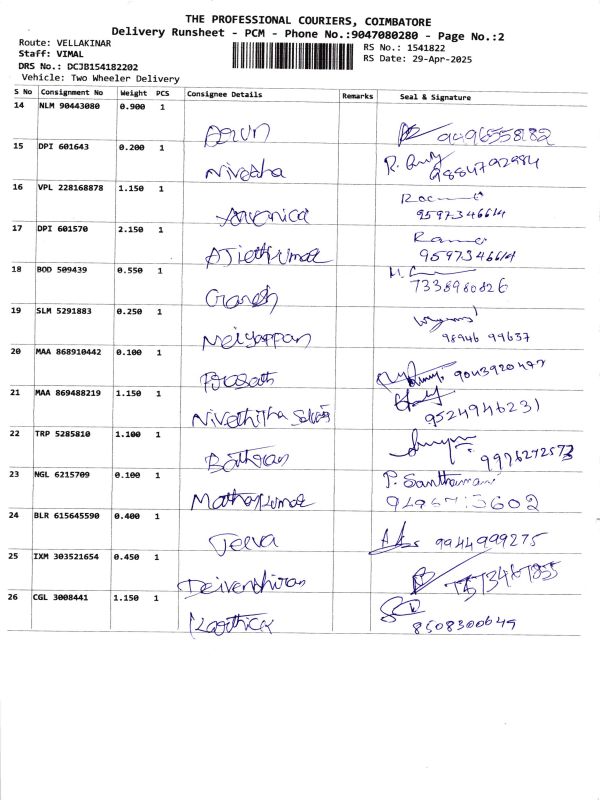 THE PROFESSIONAL COURIERS, COIMBATORE
Delivery Runsheet - PCM - Phone No.:9047080280 - Page No.:2
Route: VELLAKINAR
Staff: VIMAL
DRS No.: DCJB154182202
Vehicle: Two Wheeler Delivery
RS No.: 1541822
RS Date: 29-Apr-2025
S No Consignment No Weight PCS Consignee Details Remarks Seal & Signature
14 NLM 90443080 0.900 1 Arun
15 DPI 601643 0.200 1 Nivetha 9884792984
16 VPL 228168878 1.150 1 9597346614
17 DPI 601570 2.150 1 Ajiethkumar 9597346614
18 BOD 509439 0.550 1 Ganesh 7338980826
19 SLM 5291883 0.250 1 Meiyappan 98946 99637
20 MAA 868910442 0.100 1 Prasath
21 MAA 869488219 1.150 1 Nivethitha 9524946231
22 TRP 5285810 1.100 1
23 NGL 6215709 0.100 1 P. Santhamani
24 BLR 615645590 0.400 1 Jeeva 9944999275
25 IXM 303521654 0.450 1
26 CGL 3008441 1.150 1 Karthick 8508300649